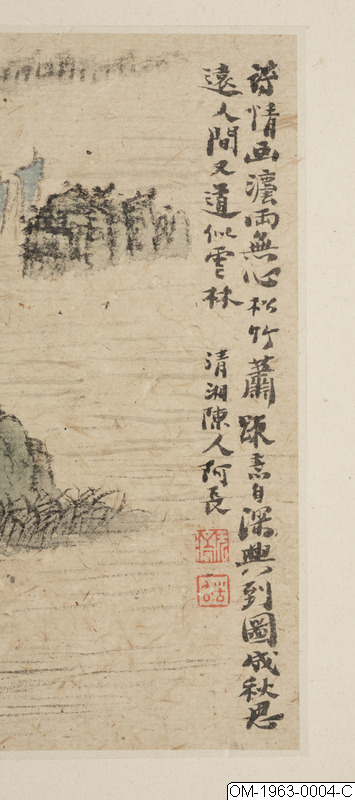 詩情画灋兩無心松竹蕭踈意自深興到圖成秋思
遠人間又道似雲林
清湘陳人阿長
OM-1963-0004-C